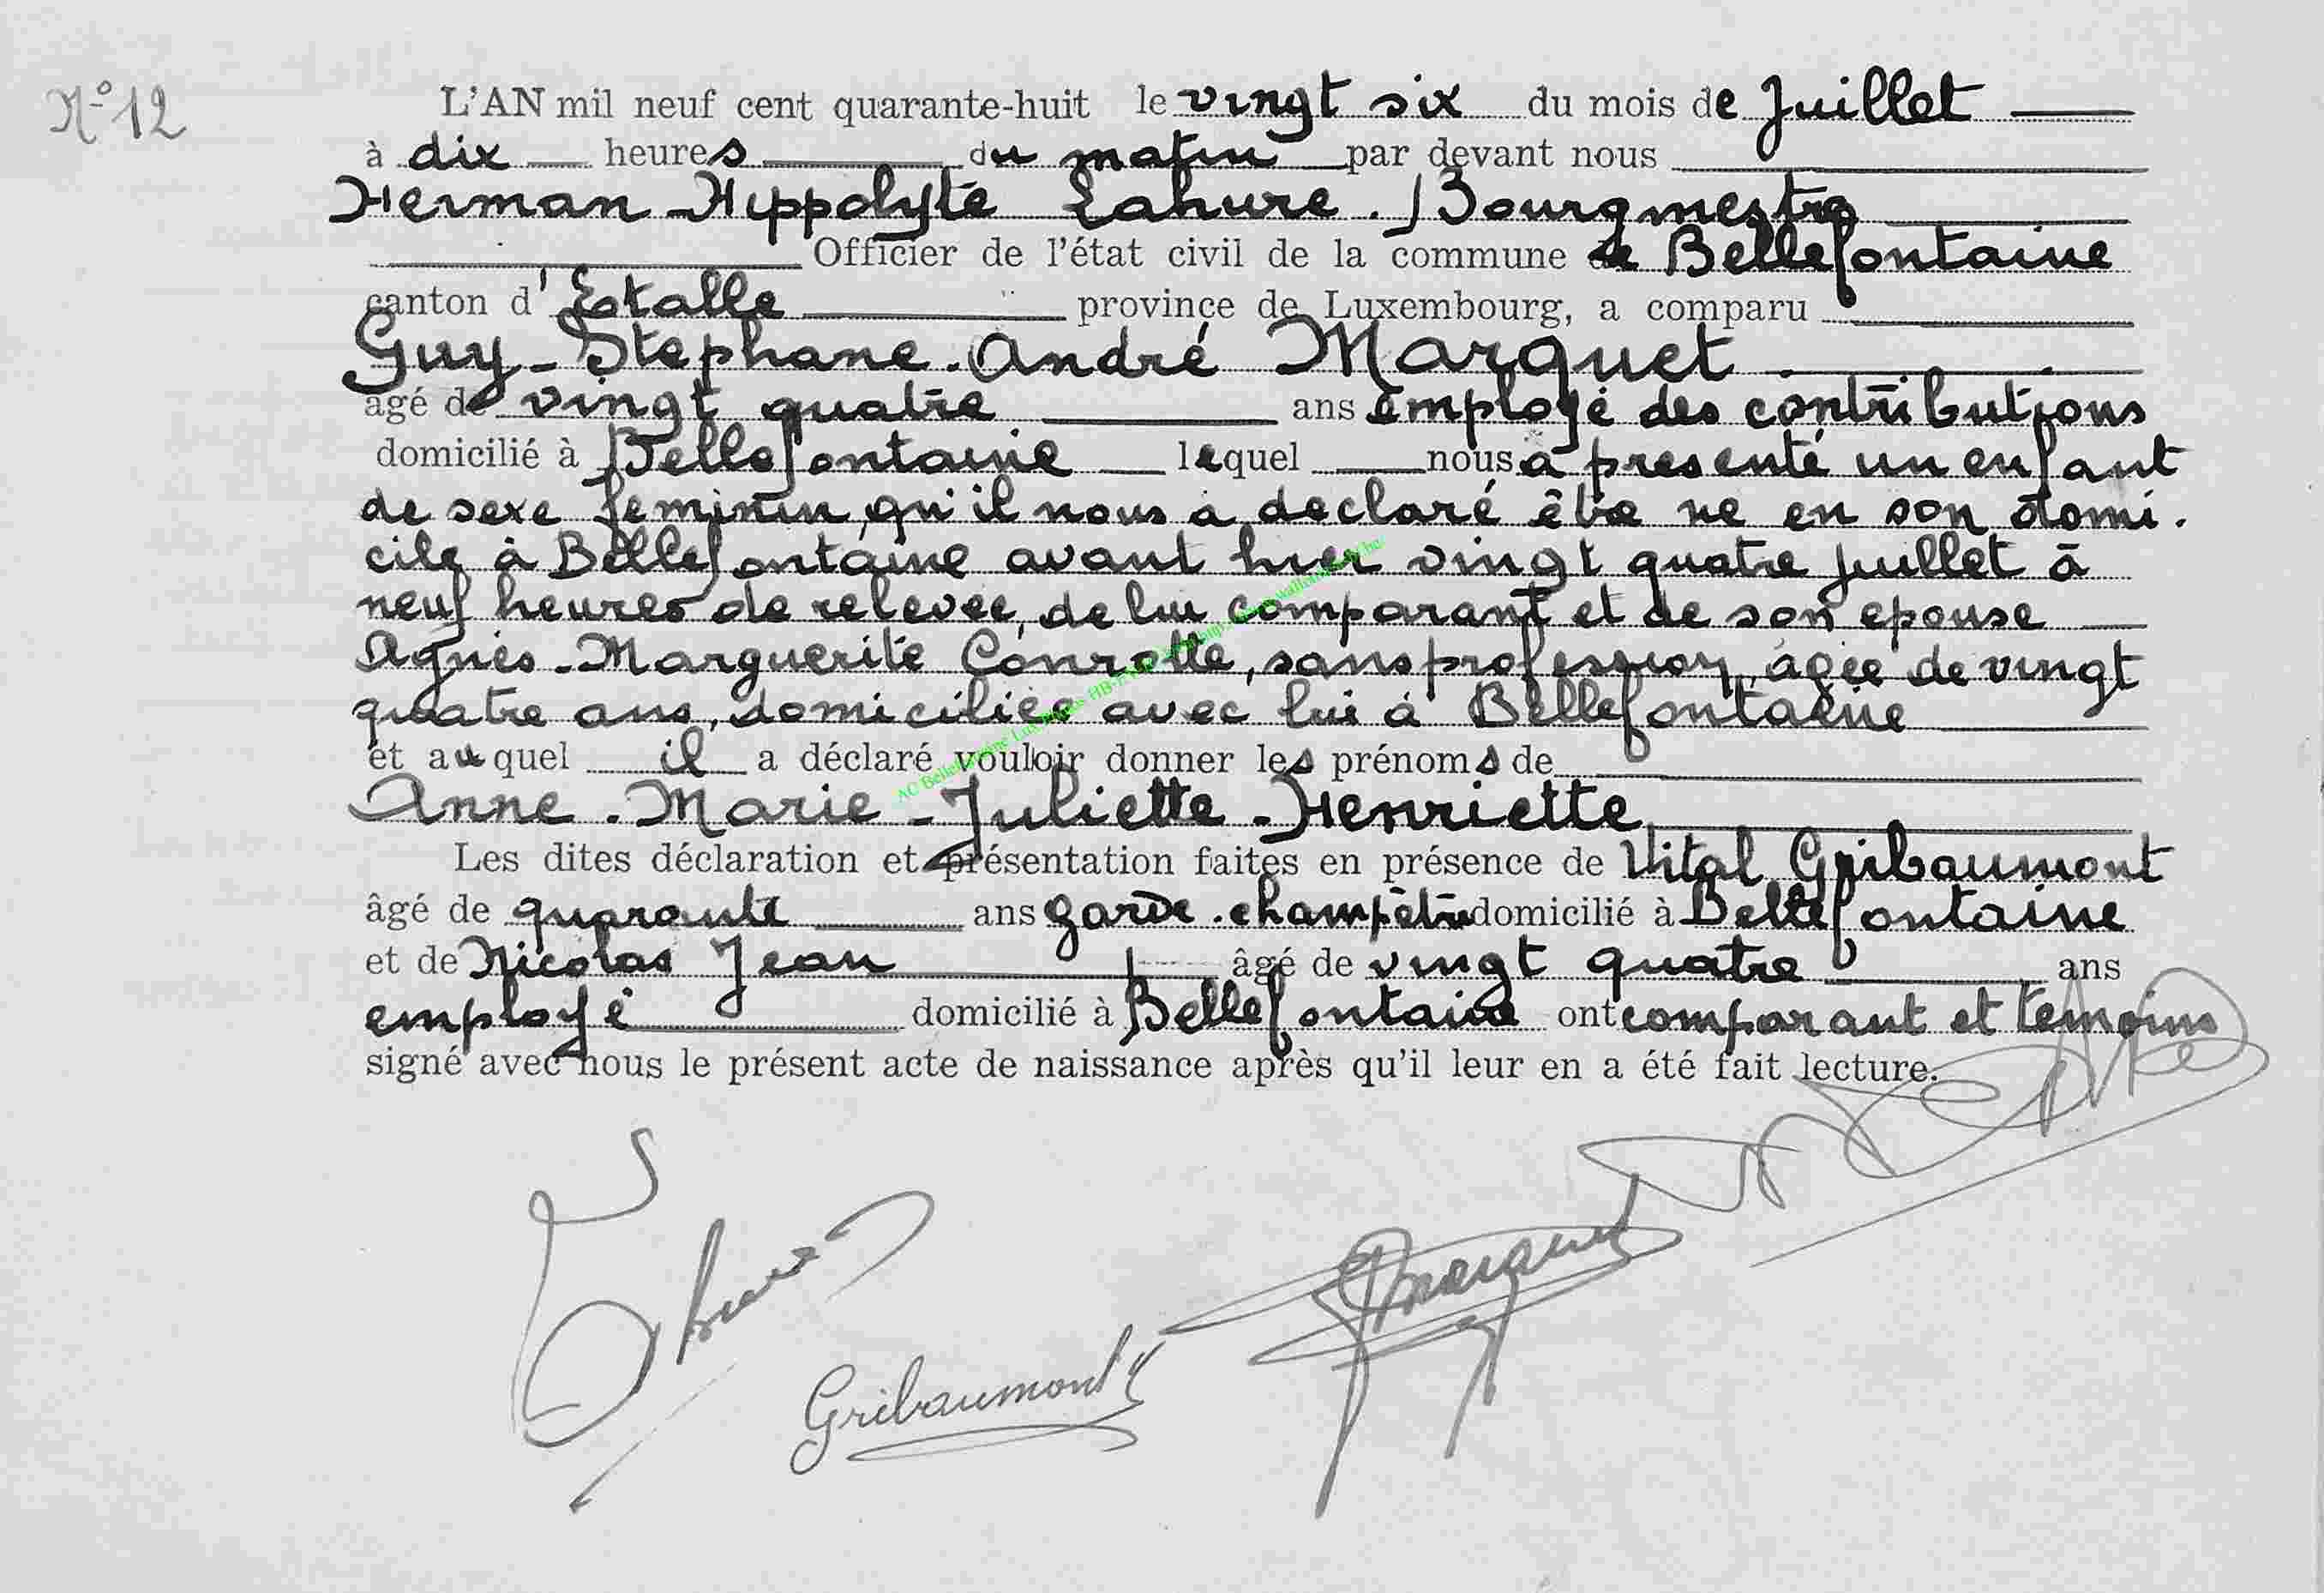 N° 12
L'AN mil neuf cent quarante-huit le vingt six du mois de Juillet
à dix heures du matin par devant nous
Herman-Hippolyte Lahure. Bourgmestre
Officier de l'état civil de la commune de Bellefontaine
canton d'Etalle province de Luxembourg, a comparu
Guy-Stephane-André Marquet
âgé de vingt quatre ans employé des contributions
domicilié à Bellefontaine lequel nous a presenté un enfant
de sexe feminin, qu'il nous a declaré être ne en son domi.
cile à Bellefontaine avant hier vingt quatre juillet à
neuf heures de relevée, de lui comparant et de son epouse
Agnès-Marguerite Conrotte, sans profession, agée de vingt
quatre ans, domiciliée avec lui à Bellefontaine
et auquel il a déclaré vouloir donner les prénoms de
Anne-Marie-Juliette-Henriette
Les dites déclaration et présentation faites en présence de Vital Gribaumont
âgé de quarante ans garde-champêtre domicilié à Bellefontaine
et de Nicolas Jean âgé de vingt quatre ans
employé domicilié à Bellefontaine ont comparant et temoins
signé avec nous le présent acte de naissance après qu'il leur en a été fait lecture.
Gribaumont